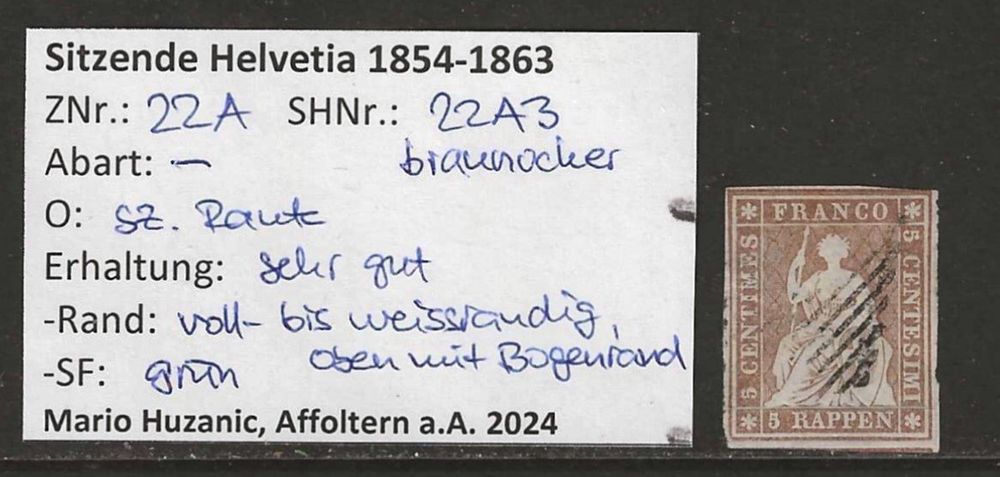 Sitzende Helvetia 1854-1863
ZNr.: 22A SHNr.: 22A3
Abart: — braunocker
O: sz. Raute
Erhaltung: sehr gut
-Rand: voll- bis weissrandig,
oben mit Bogenrand
-SF: grün
Mario Huzanic, Affoltern a.A. 2024
FRANCO
5 CENTIMES
5 CENTESIMI
5 RAPPEN